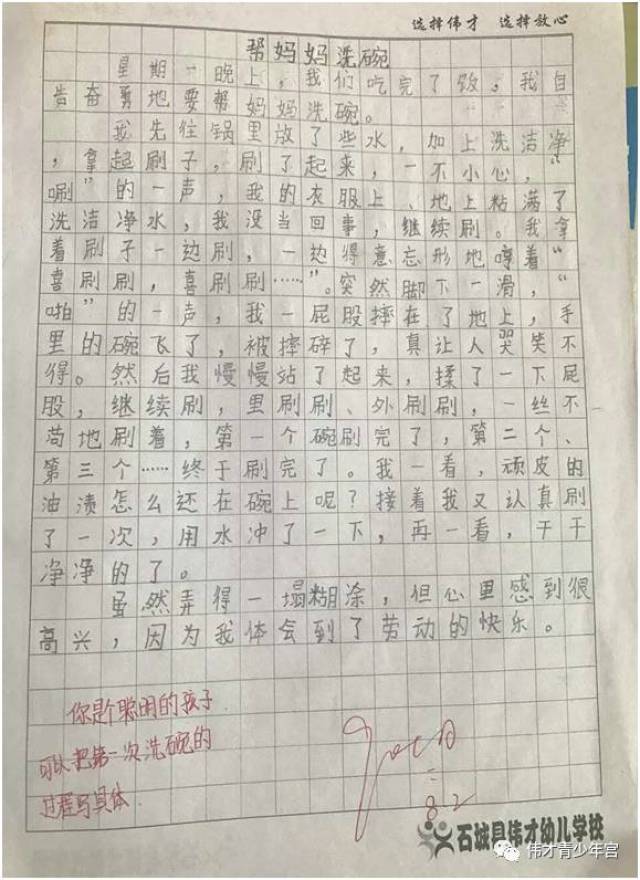 选择伟才 选择放心
帮妈妈洗碗
星期一晚上，我们吃完了饭，我自
告奋勇地要帮妈妈洗碗。
我先住锅里放了些水，加上洗洁净
，拿起刷子，刷了起来，一不小心，“
唰”的一声，我的衣服上、地上粘满了
洗洁净水，我没当回事，继续刷。我拿
着刷子一边刷，一边得意忘形地哼着“
喜刷刷，喜刷刷……”。突然脚下一滑，“
啪”的一声，我一屁股摔在了地上，手
里的碗飞了，被摔碎了，真让人哭笑不
得。然后我慢慢站了起来，揉了一下屁
股，继续刷，里刷刷、外刷刷，一丝不
苟地刷着，第一个碗刷完了，第二个、
第三个……终于刷完了。我一看，顽皮的
油渍怎么还在碗上呢？接着我又认真刷
了一次，用水冲了一下，再一看，干干
净净的了。
虽然弄得一塌糊涂，但心里感到很
高兴，因为我体会到了劳动的快乐。
你是个聪明的孩子
可以把第一次洗碗的
过程写具体.
石城县伟才幼儿学校
伟才青少年宫